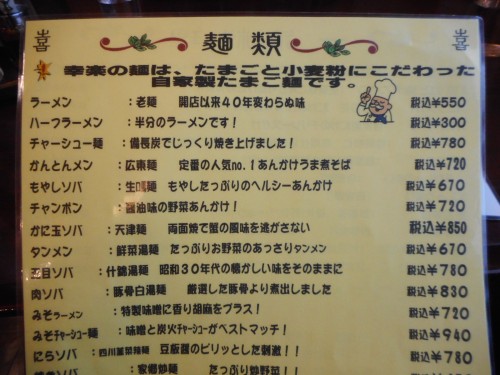 麺類
幸楽の麺は、たまごと小麦粉にこだわった
自家製たまご麺です。
ラーメン ：老麺 開店以来40年変わらぬ味 税込¥550
ハーフラーメン ：半分のラーメンです！ 税込¥300
チャーシュー麺 ：備長炭でじっくり焼き上げました！ 税込¥780
かんとんメン ：広東麺 定番の人気no.1あんかけうま煮そば 税込¥720
もやしソバ ：生碼麺 もやしたっぷりのヘルシーあんかけ 税込¥670
チャンポン ：醤油味の野菜あんかけ！ 税込¥720
かに玉ソバ ：天津麺 両面焼で蟹の風味を逃がさない 税込¥850
タンメン ：鮮菜湯麺 たっぷりお野菜のあっさりタンメン 税込¥670
五目ソバ ：什錦湯麺 昭和30年代の懐かしい味をそのままに 税込¥780
肉ソバ ：豚骨白湯麺 厳選した豚骨より煮出しました 税込¥830
みそラーメン ：特製味噌に香り胡麻をプラス！ 税込¥720
みそチャーシュー麺 ：味噌と炭火チャーシューがベストマッチ！ 税込¥940
にらソバ ：四川韮菜辣麺 豆板醤のピリッとした刺激！！ 税込¥780
：家郷炒麺 たっぷり炒野菜！！